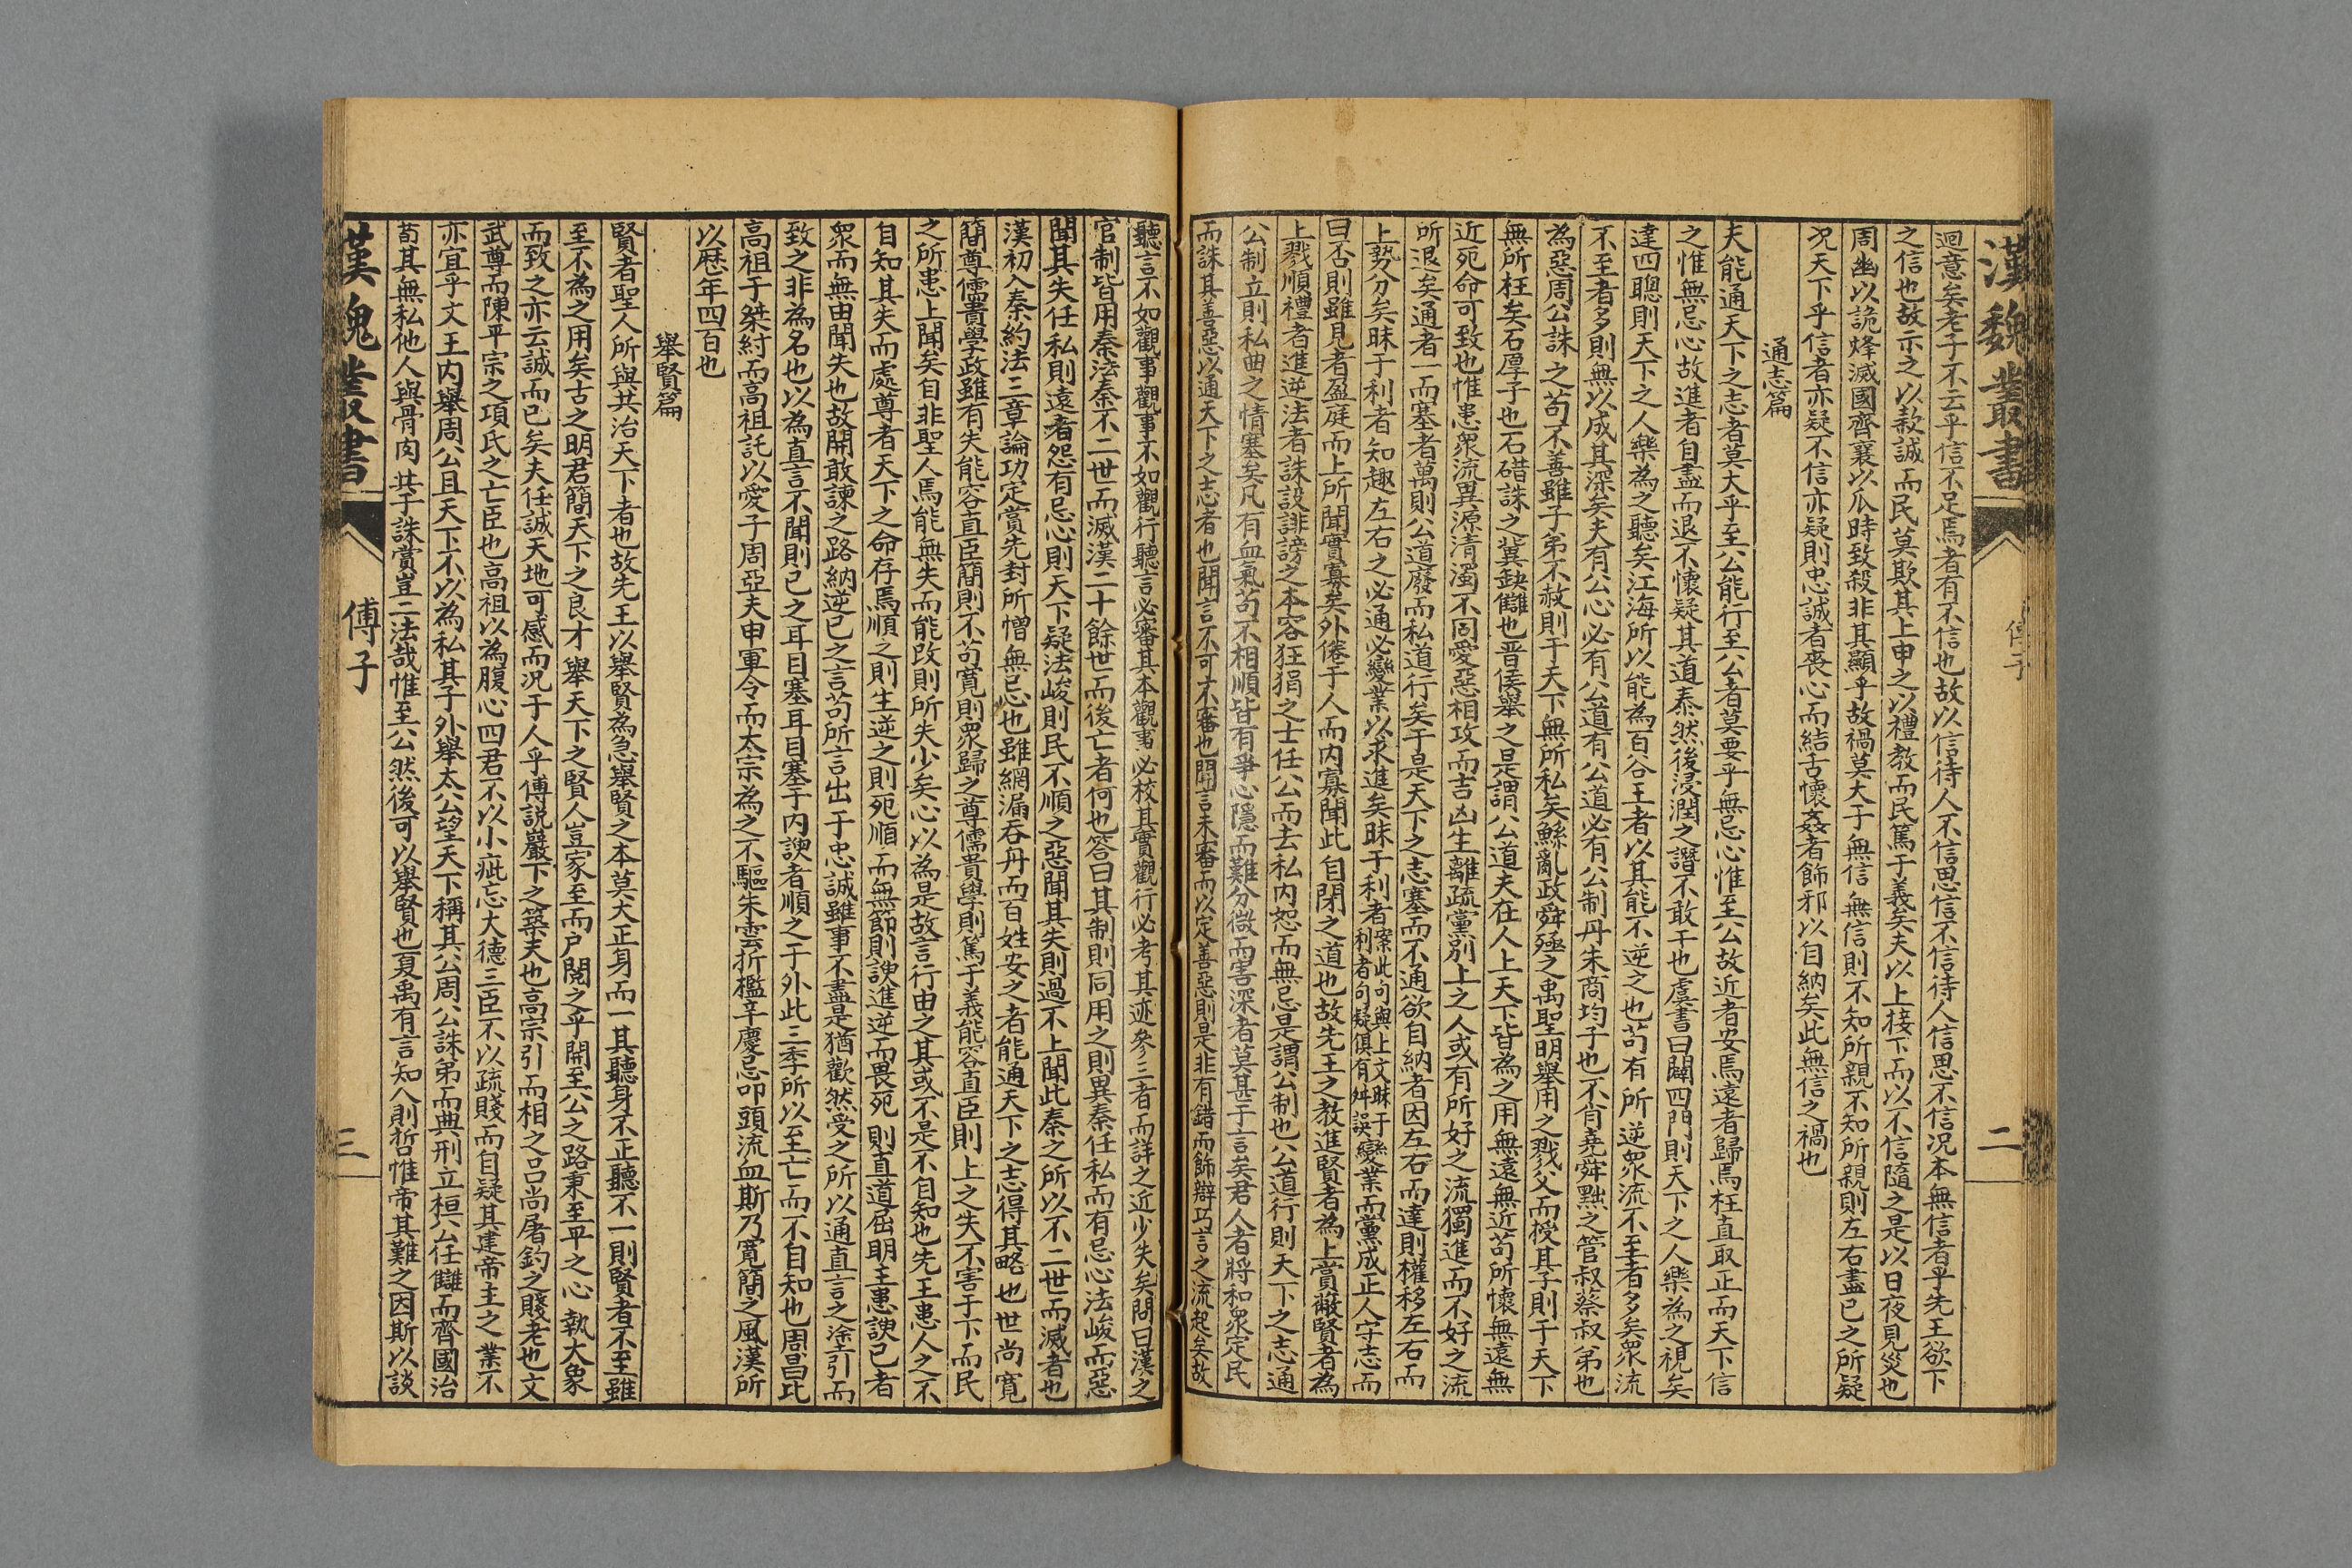 漢魏叢書
二
迴意矣老子不云乎信不足焉者有不信也故以信待人不信思信不信待人信思不信况本無信者乎先王欲下
之信也故示之以款誠而民莫欺其上申之以禮教而民篤于義矣夫以上接下而以不信隨之是以日夜見災也
周幽以詭烽滅國齊襄以瓜時致殺非其顯乎故禍莫大于無信無信則不知所親不知所親則左右盡已之所疑
况天下乎信者亦疑不信亦疑則忠誠者喪心而結舌懷姦者飾邪以自納矣此無信之禍也
通志篇
夫能通天下之志者莫大乎至公能行至公者莫要乎無忌心惟至公故近者安焉遠者歸焉枉直取正而天下信
之惟無忌心故進者自盡而退不懷疑其道泰然後浸潤之譖不敢干也虞書曰闢四門則天下之人樂為之視矣
達四聰則天下之人樂為之聽矣江海所以能為百谷王者以其能不逆之也苟有所逆眾流不至者多矣眾流
不至者多則無以成其深矣夫有公心必有公道有公道必有公制丹朱商均子也不肖堯舜黜之管叔蔡叔弟也
為惡周公誅之苟不善雖子弟不赦則于天下無所私矣鯀亂政舜殛之禹聖明舉用之戮父而授其子則于天下
無所枉矣石厚子也石碏誅之冀缺讎也晋侯舉之是謂公道夫在人上天下皆為之用無遠無近苟所懷無遠無
近死命可致也惟患眾流異源清濁不同愛惡相攻而吉凶生離疏黨別上之人或有所好之流獨進而不好之流
所退矣通者一而塞者萬則公道廢而私道行矣于是天下之志塞而不通欲自納者因左右而達則權移左右而
上勢分矣昧于利者知趣左右之必通必變業以求進矣昧于利者案此句與上文昧于利者句疑俱有舛誤變業而黨成正人守志而
曰否則雖見者盈庭而上所聞實寡矣外倦于人而内寡聞此自閉之道也故先王之教進賢者為上賞蔽賢者為
上戮順禮者進逆法者誅設誹謗之本容狂狷之士任公而去私内恕而無忌是謂公制也公道行則天下之志通
公制立則私曲之情塞矣凡有血氣苟不相順皆有爭心隱而難分微而害深者莫甚于言矣君人者將和眾定民
而誅其善惡以通天下之志者也聞言不可不審也聞言未審而以定善惡則是非有錯而飾辯巧言之流起矣故
聽言不如觀事觀事不如觀行聽言必審其本觀事必校其實觀行必考其迹參三者而詳之近少失矣問曰漢之
官制皆用秦法秦不二世而滅漢二十餘世而後亡者何也答曰其制則同用之則異秦任私而有忌心法峻而惡
聞其失任私則遠者怨有忌心則天下疑法峻則民不順之惡聞其失則過不上聞此秦之所以不二世而滅者也
漢初入秦約法三章論功定賞先封所憎無忌也雖網漏吞舟而百姓安之者能通天下之志得其略也世尚寬
簡尊儒貴學政雖有失能容直臣簡則不苟寬則眾歸之尊儒貴學則篤于義能容直臣則上之失不害于下而民
之所患上聞矣自非聖人焉能無失失而能改則所失少矣心以為是故言行由之其或不是不自知也先王患人之不
自知其失而處尊者天下之命存焉順之則生逆之則死順而無節則諛進逆而畏死則直道屈明主患諛己者
眾而無由聞失也故開敢諫之路納逆已之言苟所言出于忠誠雖事不盡是猶歡然受之所以通直言之塗引而
致之非為名也以為直言不聞則已之耳目塞耳目塞于内諛者順之于外此三季所以至亡而不自知也周昌比
高祖于桀紂而高祖託以愛子周亞夫申軍令而太宗為之不驅朱雲折檻辛慶忌叩頭流血斯乃寬簡之風漢所
以歷年四百也
舉賢篇
賢者聖人所與共治天下者也故先王以舉賢為急舉賢之本莫大正身而一其聽身不正聽不一則賢者不至雖
至不為之用矣古之明君簡天下之良才舉天下之賢人豈家至而户閱之乎開至公之路秉至平之心執大象
而致之亦云誠而已矣夫任誠天地可感而况于人乎傅說巖下之築夫也高宗引而相之呂尚屠釣之賤老也文
武尊而陳平宗之項氏之亡臣也高祖以為腹心四君不以小疵忘大德三臣不以疏賤而自疑其建帝王之業不
亦宜乎文王内舉周公旦天下不以為私其子外舉太公望天下稱其公周公誅弟而典刑立桓公任讎而齊國治
苟其無私他人與骨肉其于誅賞豈二法哉惟至公然後可以舉賢也夏禹有言知人則哲惟帝其難之因斯以談
漢魏叢書
傅子
三